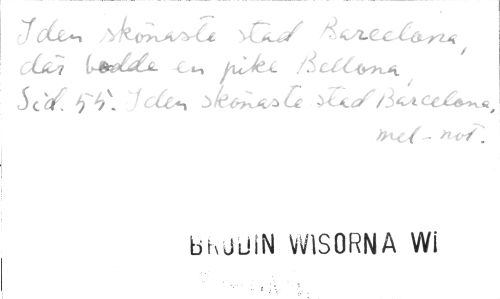 I den skönaste stad Barcelona,
där bodde en pike Bellona,
Sid. 55. I den skönaste stad Barcelona,
mel-not.
BRODIN WISORNA WI